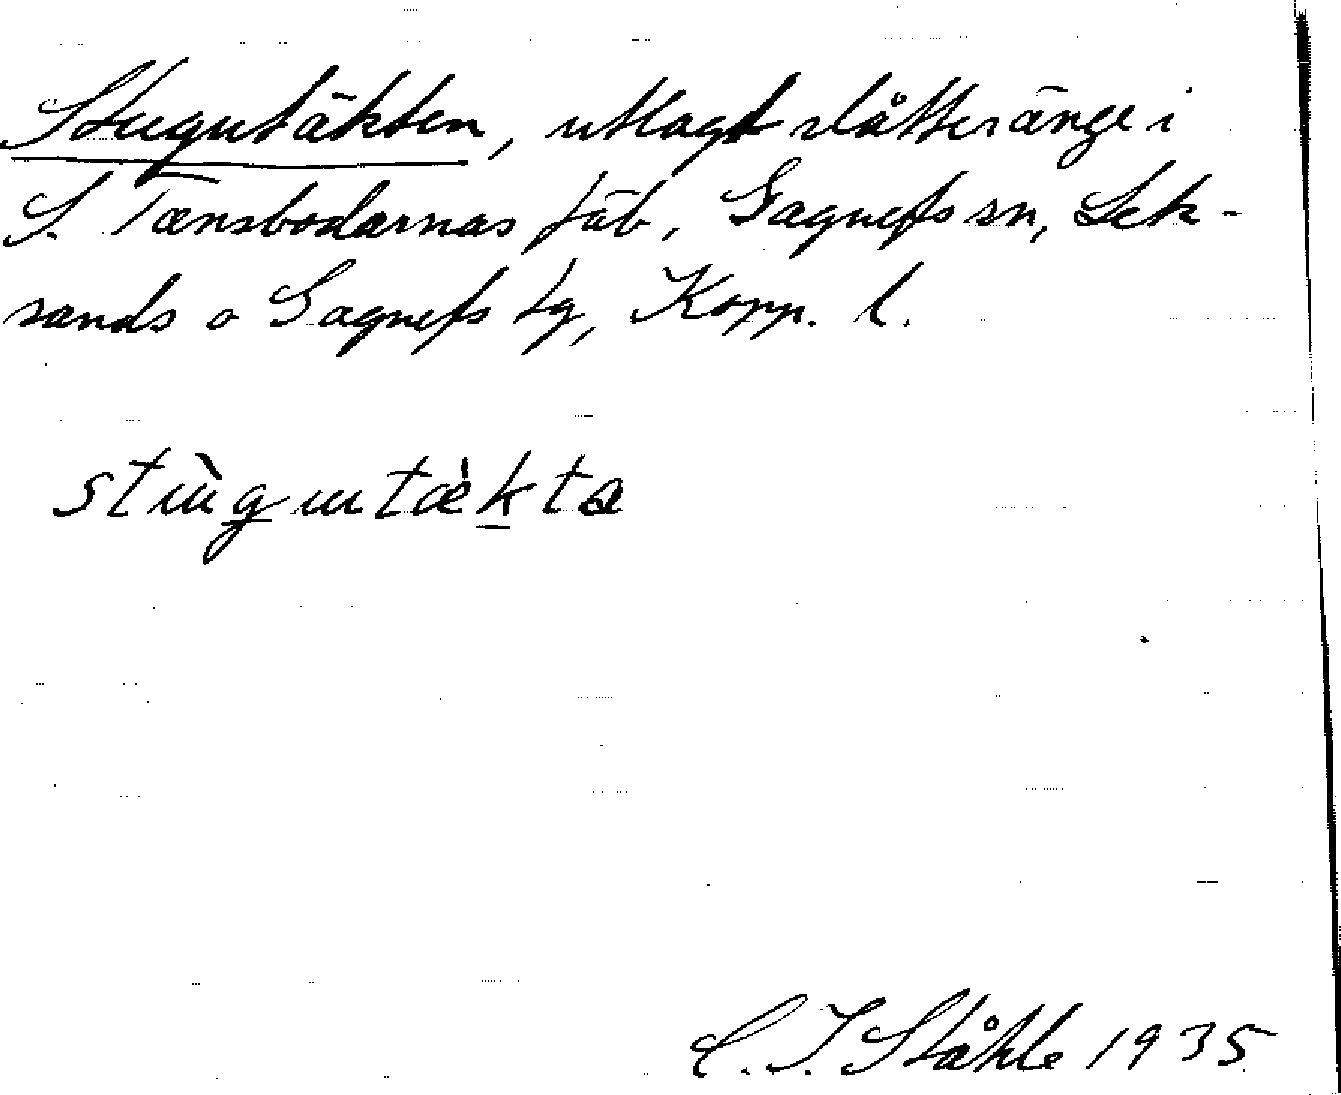 Stugutäkten, utlagt slåtteränge i
S. Tænsbodarnas fäb, Gagnefs sn, Lek-
sands o Gagnefs tg, Kopp. l.
stùgutæ̀kta
C. I. Ståhle 1935